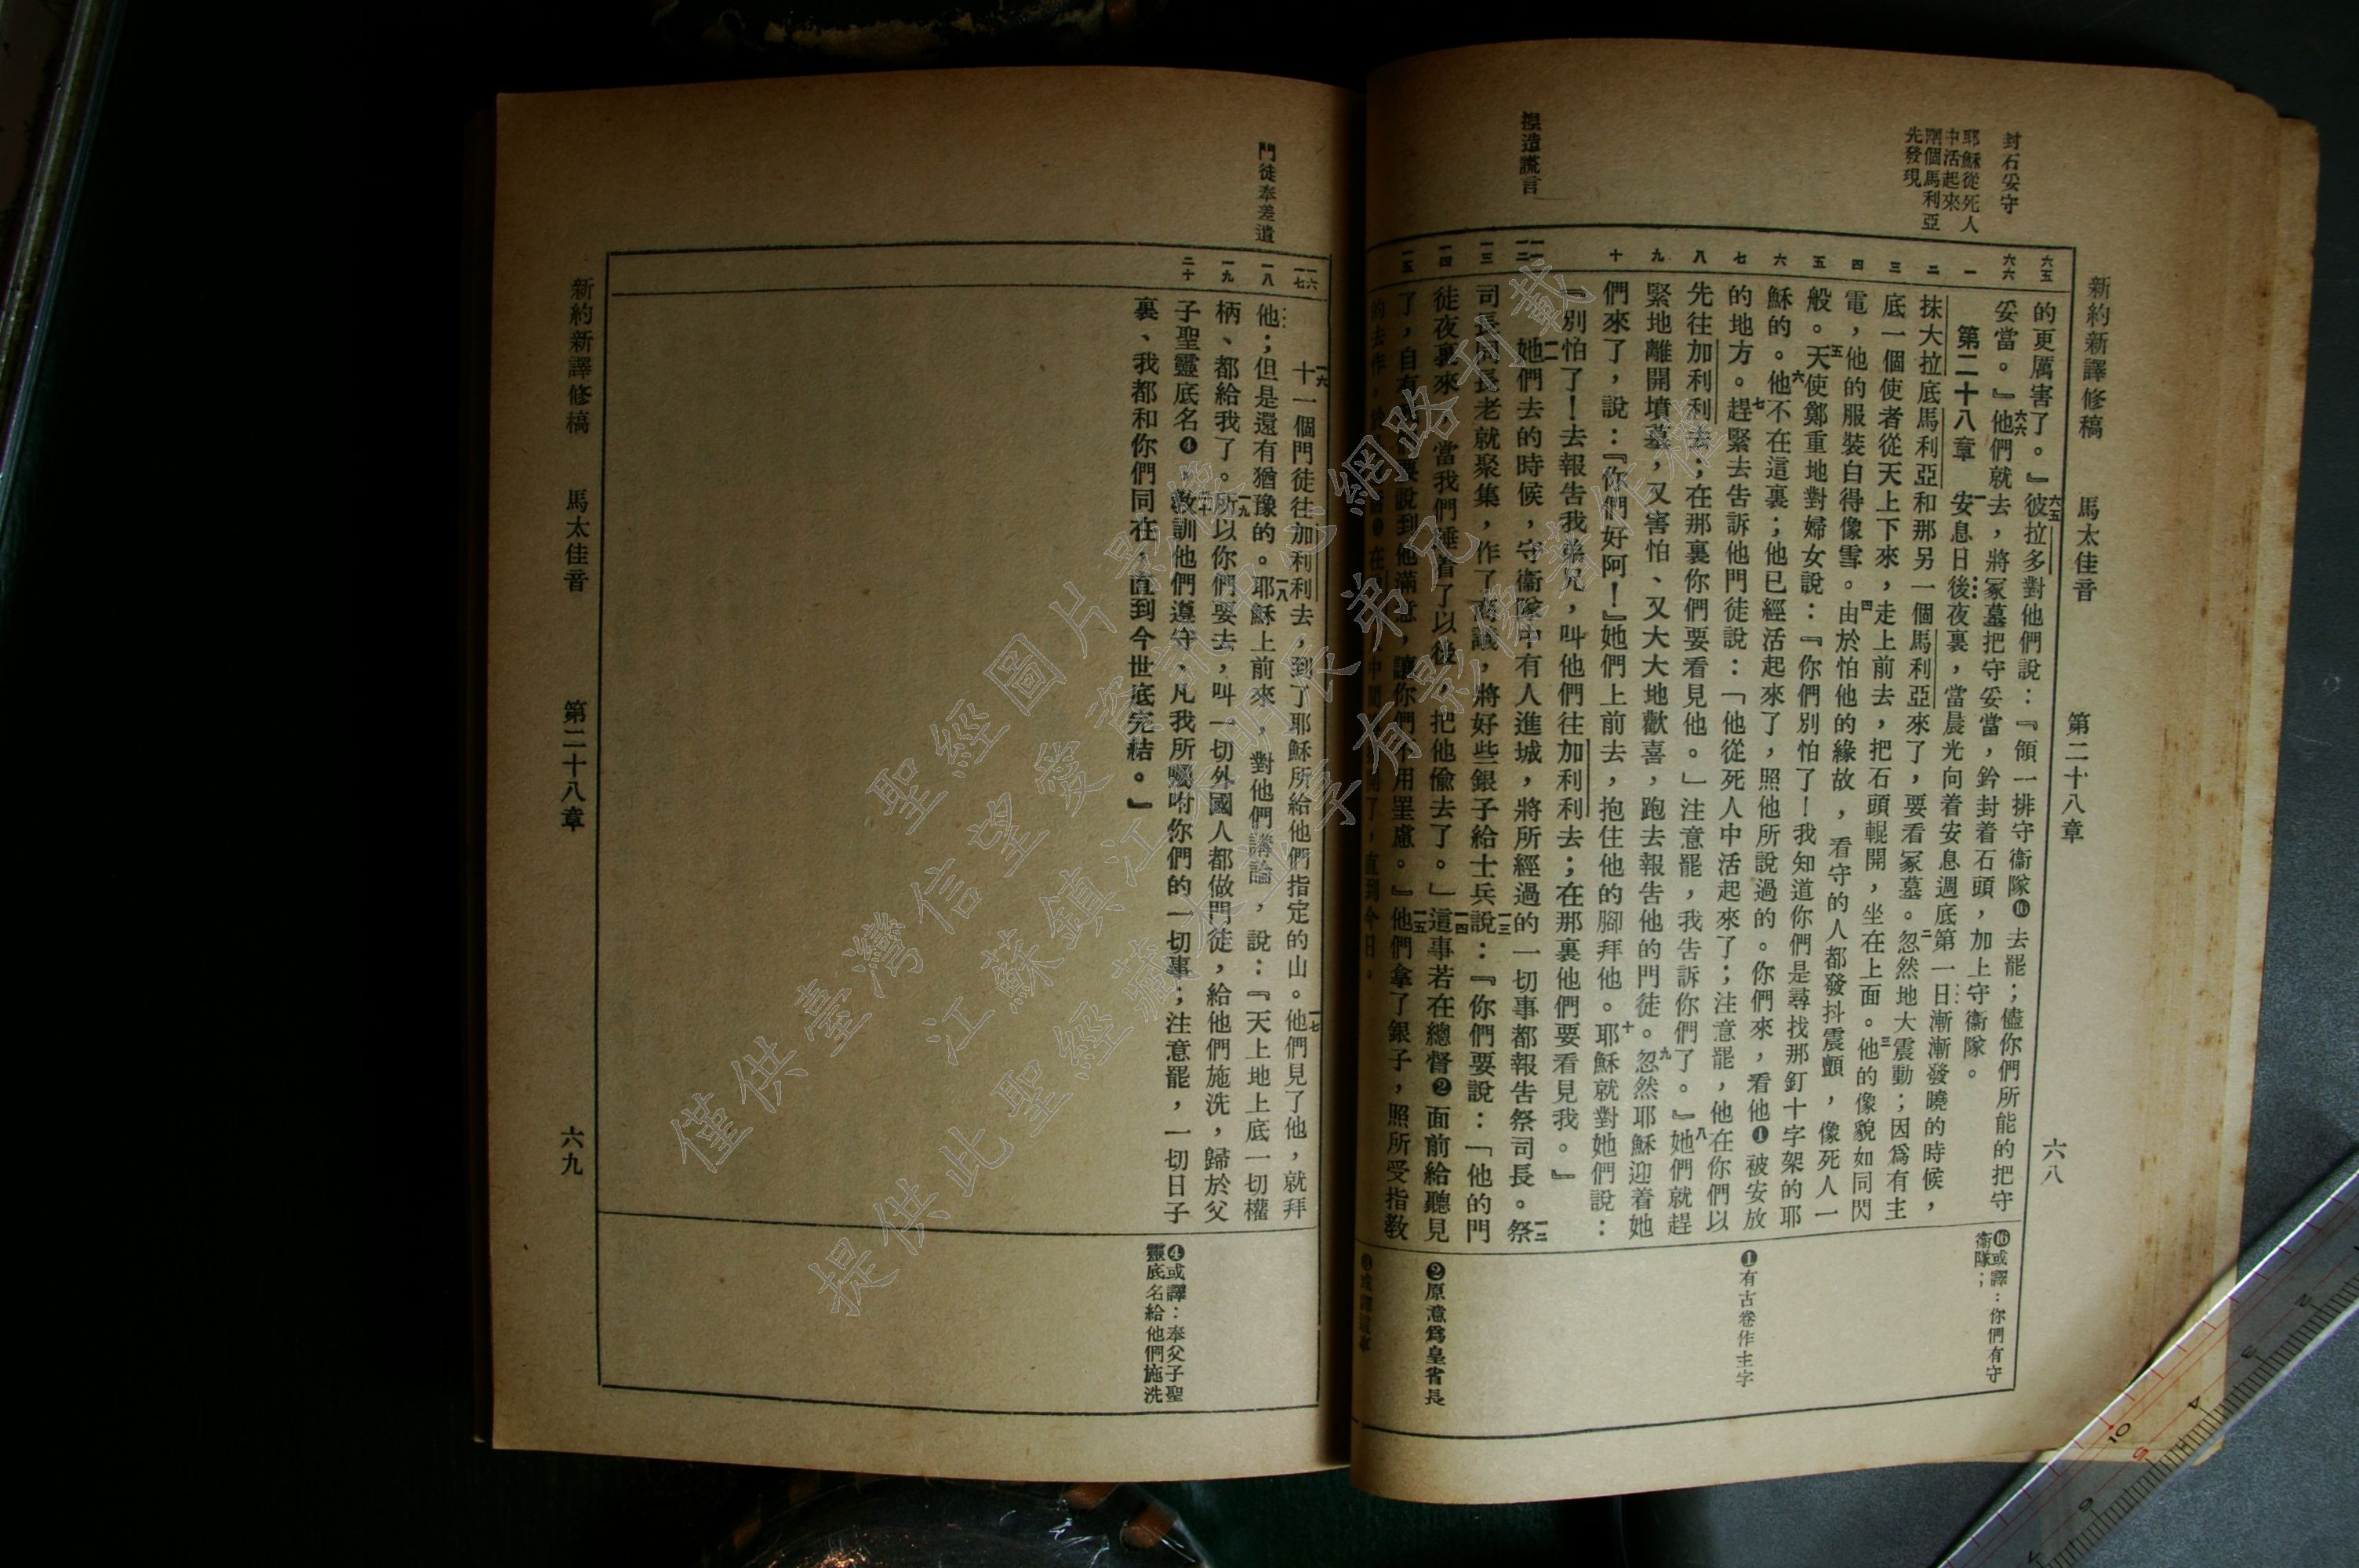 新約新譯修稿 馬太佳音 第二十八章 六八
封石妥守
耶穌從死人
中活起來
兩個馬利亞
先發現
捏造謊言
六五 六六 一 二 三 四 五 六 七 八 九 十 一一 一二 一三 一四 一五
的更厲害了。』六五彼拉多對他們說：『領一排守衞隊⓰去罷；儘你們所能的把守
妥當。』六六他們就去，將冢墓把守妥當，鈐封着石頭，加上守衞隊。
第二十八章 一安息日後夜裏，當晨光向着安息週底第一日漸漸發曉的時候，
抹大拉底馬利亞和那另一個馬利亞來了，要看冢墓。二忽然地大震動；因爲有主
底一個使者從天上下來，走上前去，把石頭輥開，坐在上面。三他的像貌如同閃
電，他的服裝白得像雪。四由於怕他的緣故，看守的人都發抖震顫，像死人一
般。五天使鄭重地對婦女說：『你們別怕了！我知道你們是尋找那釘十字架的耶
穌的。六他不在這裏；他已經活起來了，照他所說過的。你們來，看他❶被安放
的地方。七趕緊去告訴他門徒說：「他從死人中活起來了；注意罷，他在你們以
先往加利利去；在那裏你們要看見他。」注意罷，我告訴你們了。』八她們就趕
緊地離開墳墓，又害怕、又大大地歡喜，跑去報告他的門徒。九忽然耶穌迎着她
們來了，說：『你們好阿！』她們上前去，抱住他的腳拜他。十耶穌就對她們說：
『別怕了！去報告我弟兄，叫他們往加利利去；在那裏他們要看見我。』
一一她們去的時候，守衞隊中有人進城，將所經過的一切事都報告祭司長。一二祭
司長同長老就聚集，作了商議，將好些銀子給士兵一三說：『你們要說：「他的門
徒夜裏來，當我們睡着了以後，把他偷去了。」一四這事若在總督❷面前給聽見
了，自有我們要說到他滿意，讓你們不用罣慮。』一五他們拿了銀子，照所受指教
的去作。直到今日。
⓰或譯：你們有守
衞隊；
❶有古卷作主字
❷原意爲皇省長
門徒奉差遣
一六 一七 一八 一九 二十
一六十一個門徒往加利利去，到了耶穌所給他們指定的山。一七他們見了他，就拜
他；但是還有猶豫的。一八耶穌上前來，對他們講論，說：『天上地上底一切權
柄、都給我了。一九所以你們要去，叫一切外國人都做門徒，給他們施洗，歸於父
子聖靈底名❹，二十教訓他們遵守、凡我所囑咐你們的一切事；注意罷，一切日子
裏、我都和你們同在，直到今世底完結。』
❹或譯：奉父子聖
靈底名給他們施洗
新約新譯修稿 馬太佳音 第二十八章 六九
僅供臺灣信望愛資訊中心網路刊載
聖經圖片影像
江蘇鎮江
提供此聖經
享有影像著作權